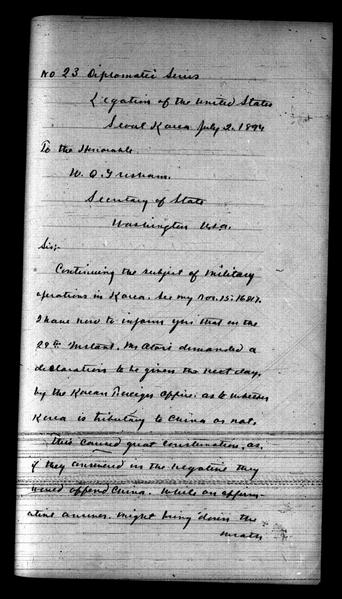 No 23 Diplomatic Series
Legation of the United States
Seoul Korea July 2. 1894
To the Honorable
W. Q. Gresham.
Secretary of State
Washington U.S.A.
Sir:-
Continuing the subject of military
operations in Korea. See my Nos. 15. 16 & 17.
I have now to inform you that on the
29th instant. Mr Otori demanded a
declaration to be given the next day,
by the Korean Foreign Office: as to whether
Korea is tributary to China or not.
This caused great consternation, as,
if they answered in the negative they
would offend China. While an affirm-
ative answer. might bring down the
wrath